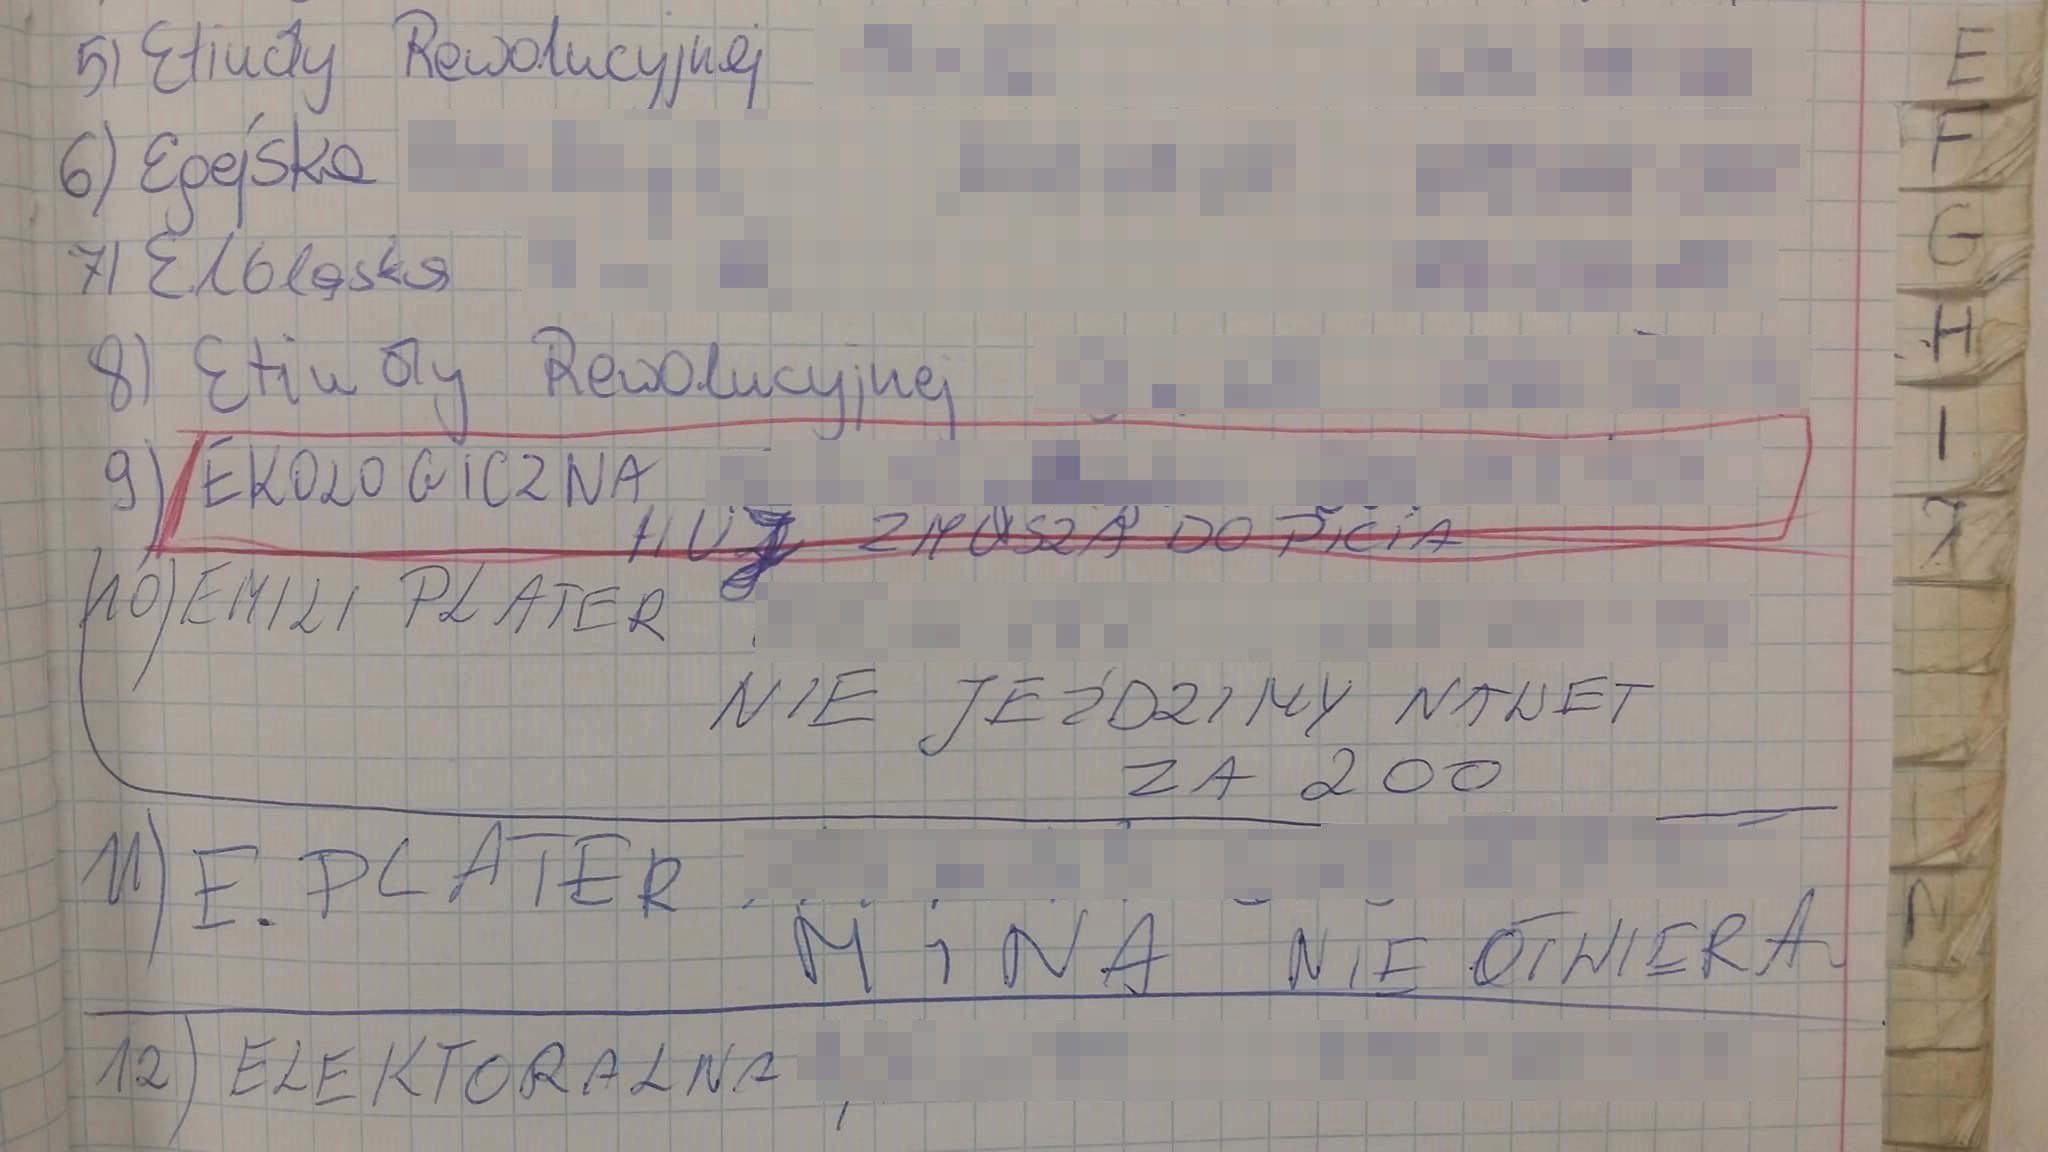 5) Etiudy Rewolucyjnej
6) Egejska
7) Elbląska
8) Etiudy Rewolucyjnej
9) EKOLOGICZNA
HUJ ZMUSZA DO PICIA
10) EMILI PLATER
NIE JEŹDZIMY NAWET
ZA 200
11) E. PLATER
MINA NIE OTWIERA
12) ELEKTORALNA,
E
F
G
H
I
J
N